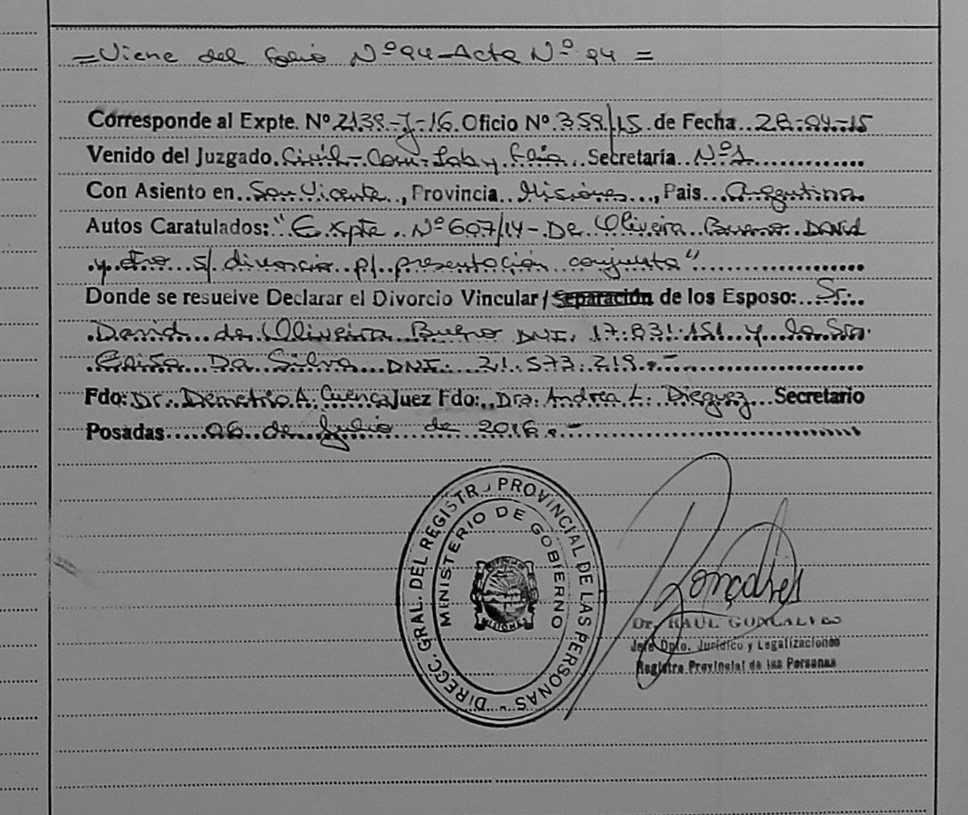 =Viene del folio Nº 94-Acta Nº 94 =
Corresponde al Expte. Nº 2139-J-16. Oficio Nº 359/15 de Fecha 28-04-15
Venido del Juzgado Civil-Com-Lab y Flia. Secretaría Nº1
Con Asiento en San Vicente, Provincia Misiones, Pais Argentina
Autos Caratulados: "Expte. Nº 607/14-De Oliveira Bueno David
y otro s/ divorcio p/ presentación conjunta"
Donde se resuelve Declarar el Divorcio Vincular/Separación de los Esposo: Sr.
David de Oliveira Bueno DNI. 17.831.151 y la Sra.
Da Silva DNI. 21.573.219.-
Fdo: Dr. Demetrio A. Cuenca Juez Fdo: Dra. Andrea L. Dieguez Secretario
Posadas 06 de Julio de 2016.-
DIRECC. GRAL. DEL REGISTRO PROVINCIAL DE LAS PERSONAS
MINISTERIO DE GOBIERNO
MISIONES
Gonçalves
Dr. RAUL GONCALVES
Jefe Dpto. Jurídico y Legalizaciones
Registro Provincial de las Personas